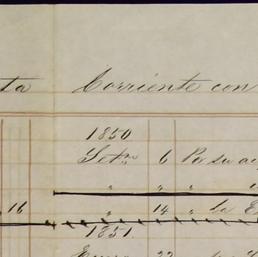 ta Corriente con
1850
Setre 6 Por su
" " "
16 " 14 " le
1851
Enero 22